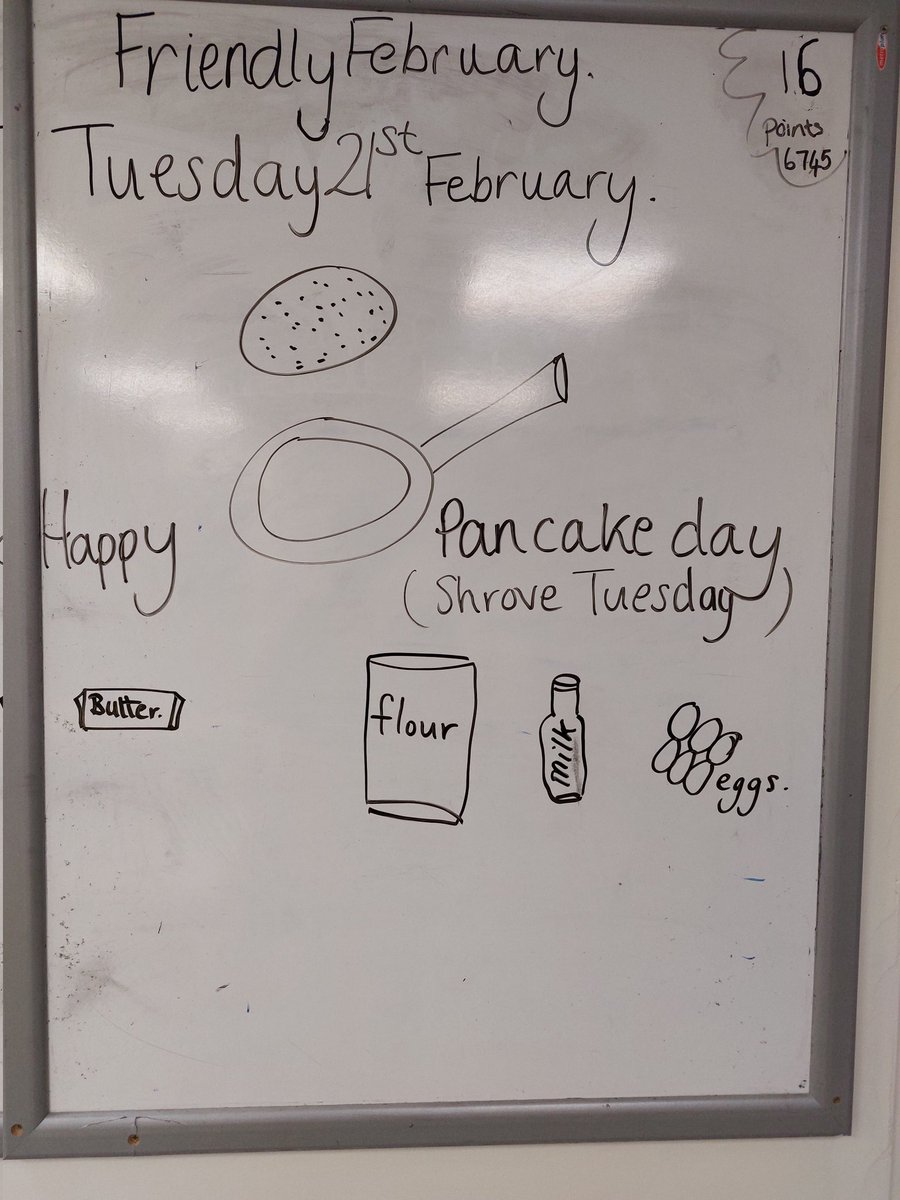 Friendly February.
16
points
16745
Tuesday 21st February.
Happy Pancake day
(Shrove Tuesday)
Butter.
flour
milk
eggs.